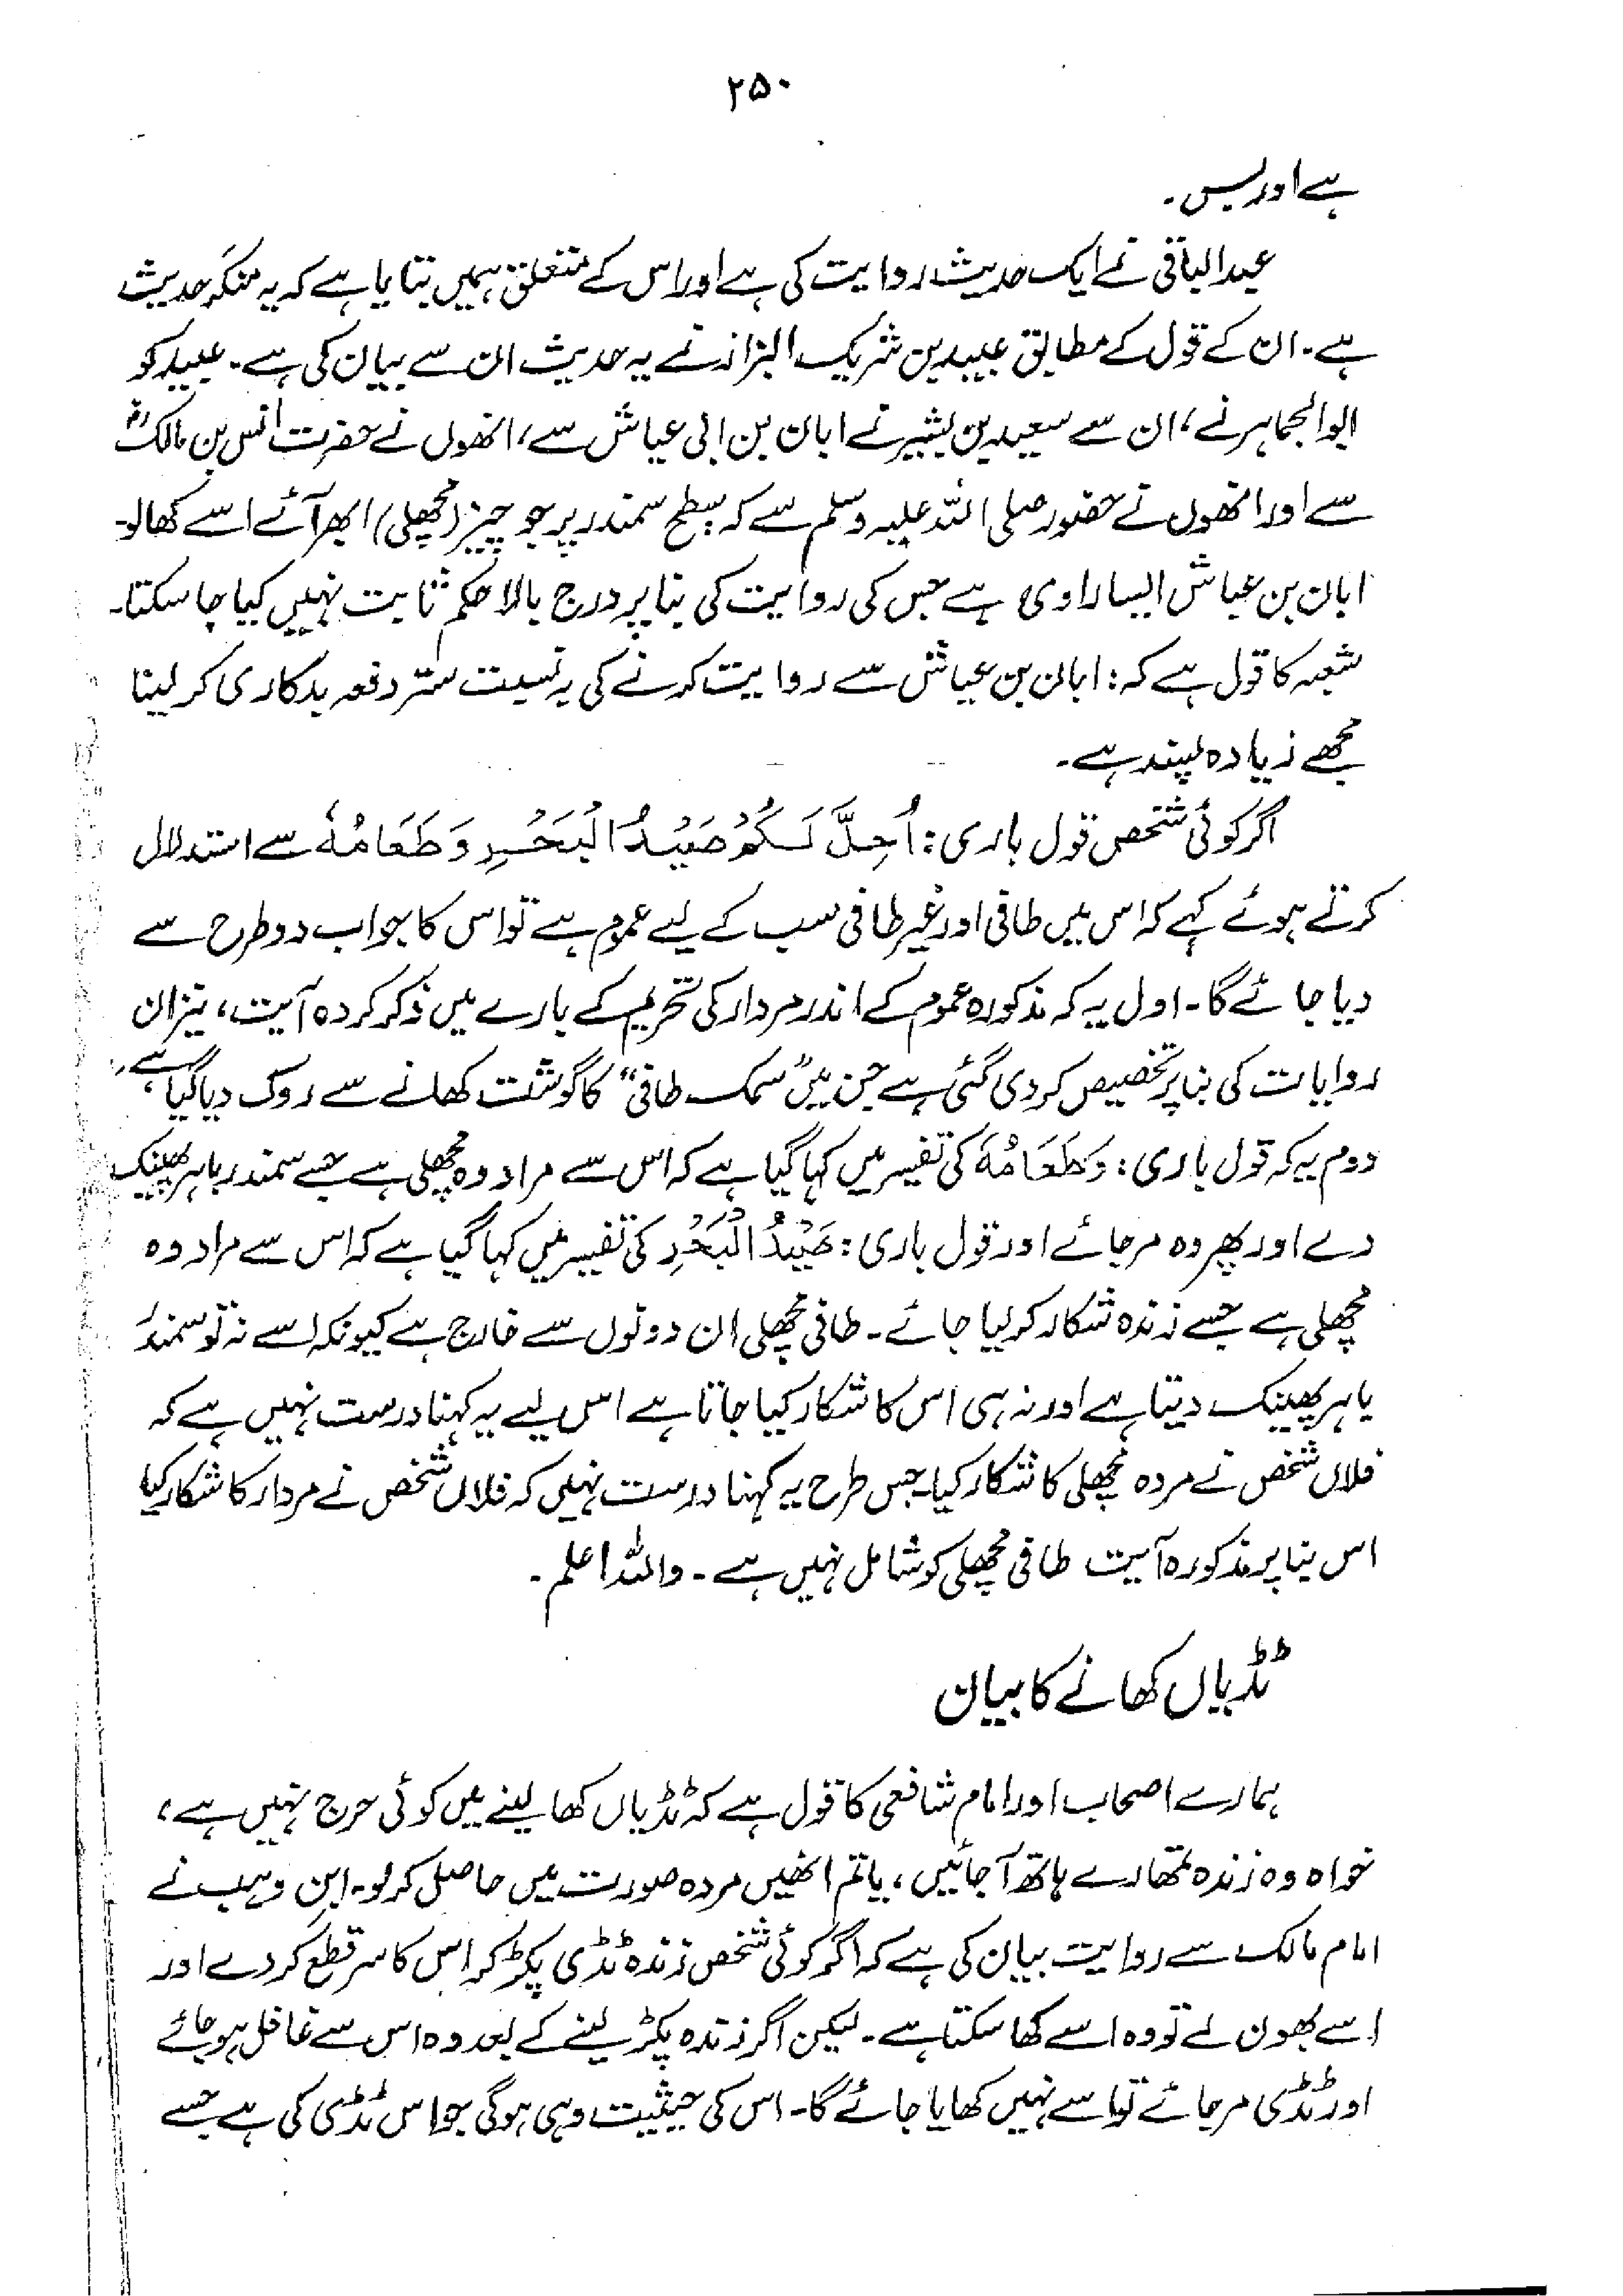 ۲۵۰
ہے اور بس۔
عبدالباقی نے ایک حدیث روایت کی ہے اور اس کے متعلق ہمیں بتایا ہے کہ یہ منکر حدیث
ہے۔ ان کے قول کے مطابق عبید بن شریک البزاز نے یہ حدیث ان سے بیان کی ہے۔ عبید کو
ابوالجماہر نے، ان سے سعید بن بشیر نے ابان بن ابی عیاش سے، انھوں نے حضرت انس بن مالکؓ
سے اور انھوں نے حضور صلی اللہ علیہ وسلم سے کہ: سطح سمندر پر جو چیز (مچھلی) ابھر آئے اسے کھا لو۔
ابان بن عیاش ایسا راوی ہے جس کی روایت کی بنا پر درج بالا حکم ثابت نہیں کیا جا سکتا۔
شعبہ کا قول ہے کہ: ابان بن عیاش سے روایت کرنے کی بہ نسبت ستر دفعہ بدکاری کر لینا
مجھے زیادہ پسند ہے۔
اگر کوئی شخص قول باری: اُحِلَّ لَكُمْ صَيْدُ الْبَحْرِ وَطَعَامُهٗ سے استدلال
کرتے ہوئے کہے کہ اس میں طافی اور غیر طافی سب کے لیے عموم ہے تو اس کا جواب دو طرح سے
دیا جائے گا۔ اول یہ کہ مذکورہ عموم کے اندر مردار کی تحریم کے بارے میں ذکر کردہ آیت، نیز ان
روایات کی بنا پر تخصیص کر دی گئی ہے جن میں "سمک طافی" کا گوشت کھانے سے روک دیا گیا ہے،
دوم یہ کہ قول باری: وَطَعَامُهٗ کی تفسیر میں کہا گیا ہے کہ اس سے مراد وہ مچھلی ہے جسے سمندر باہر پھینک
دے اور پھر وہ مر جائے اور قول باری: صَيْدُ الْبَحْرِ کی تفسیر میں کہا گیا ہے کہ اس سے مراد وہ
مچھلی ہے جسے زندہ شکار کر لیا جائے۔ طافی مچھلی ان دونوں سے خارج ہے کیونکہ اسے نہ تو سمندر
باہر پھینک دیتا ہے اور نہ ہی اس کا شکار کیا جاتا ہے اس لیے یہ کہنا درست نہیں ہے کہ
فلاں شخص نے مردہ مچھلی کا شکار کیا جس طرح یہ کہنا درست نہیں کہ فلاں شخص نے مردار کا شکار کیا
اس بنا پر مذکورہ آیت طافی مچھلی کو شامل نہیں ہے۔ واللہ اعلم۔
ٹڈیاں کھانے کا بیان
ہمارے اصحاب اور امام شافعی کا قول ہے کہ ٹڈیاں کھا لینے میں کوئی حرج نہیں ہے،
خواہ وہ زندہ تمھارے ہاتھ آ جائیں، یا تم انھیں مردہ صورت میں حاصل کر لو۔ ابن وہب نے
امام مالک سے روایت بیان کی ہے کہ اگر کوئی شخص زندہ ٹڈی پکڑ کر اس کا سر قطع کر دے اور
اسے بھون لے تو وہ اسے کھا سکتا ہے۔ لیکن اگر زندہ پکڑ لینے کے بعد وہ اس سے غافل ہو جائے
اور ٹڈی مر جائے تو اسے نہیں کھایا جائے گا۔ اس کی حیثیت وہی ہوگی جو اس ٹڈی کی ہے جسے